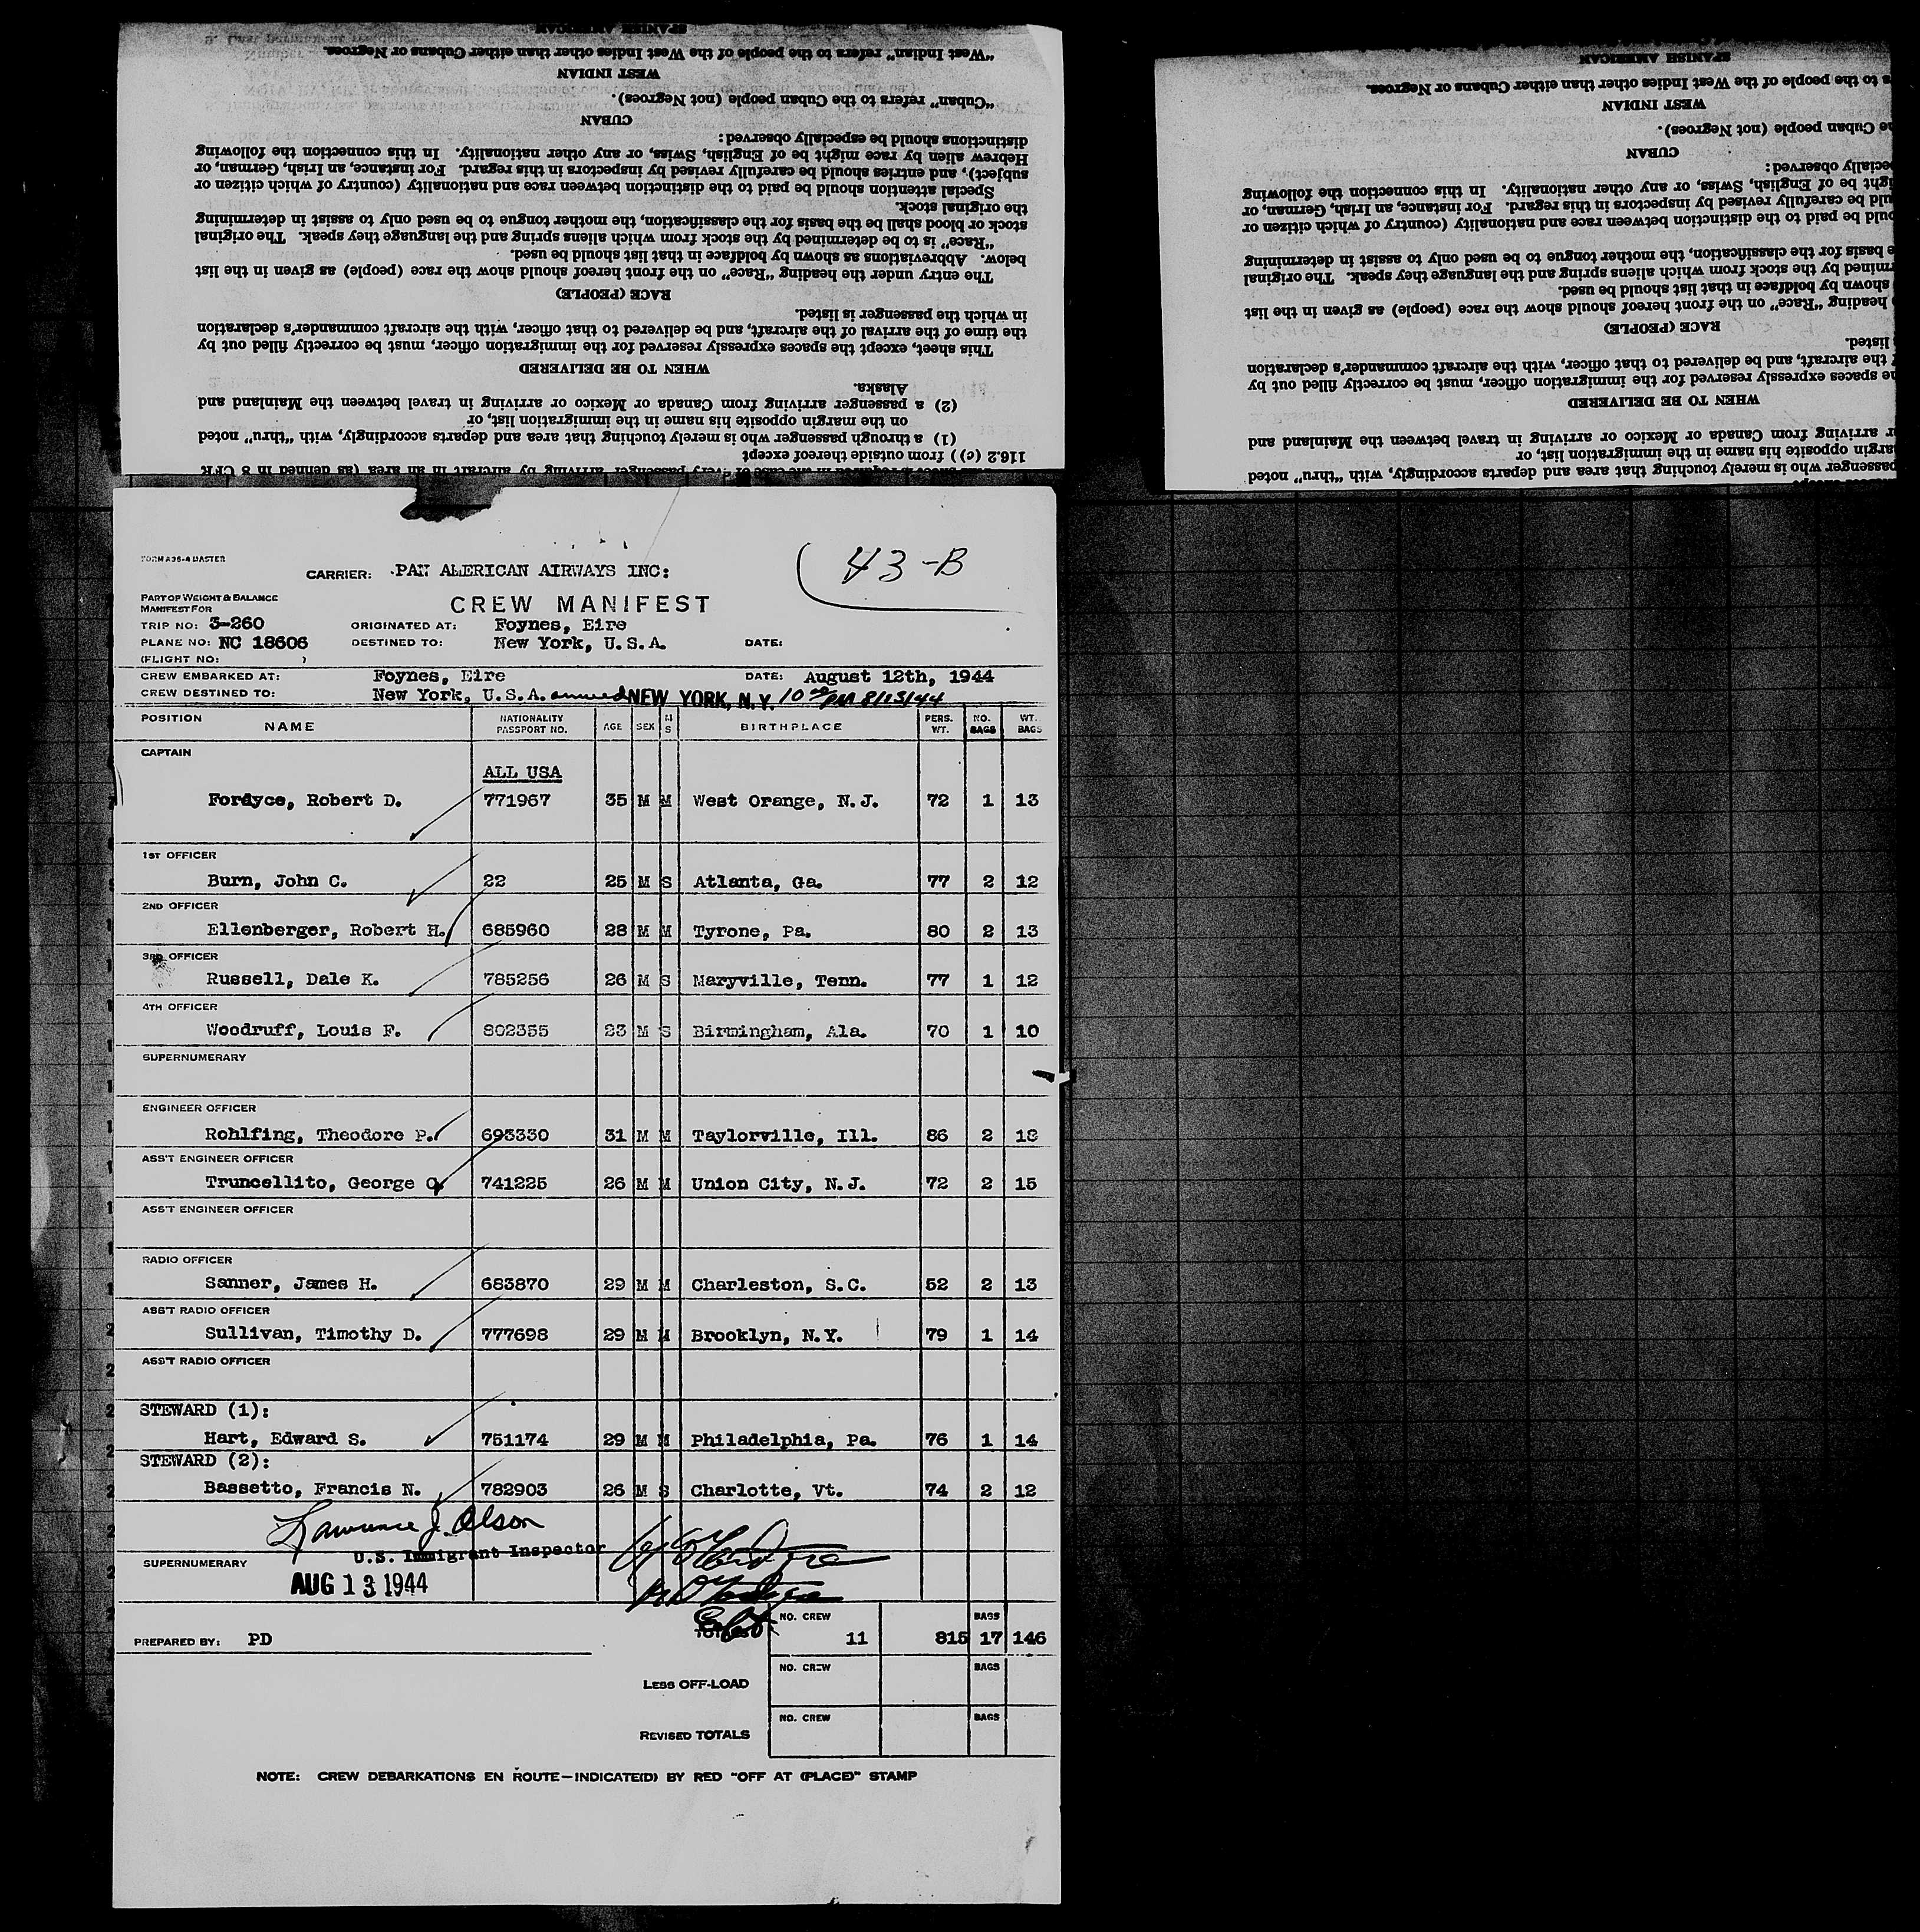 SPANISH AMERICAN
"West Indian" refers to the people of the West Indies other than either Cubans or Negroes.
WEST INDIAN
"Cuban" refers to the Cuban people (not Negroes).
CUBAN
distinctions should be especially observed:
Hebrew alien by race might be of English, Swiss, or any other nationality. In this connection the following
subject), and entries should be carefully revised by inspectors in this regard. For instance, an Irish, German, or
Special attention should be paid to the distinction between race and nationality (country of which citizen or
the original stock.
stock or blood shall be the basis for the classification, the mother tongue to be used only to assist in determining
"Race" is to be determined by the stock from which aliens spring and the language they speak. The original
below. Abbreviations as shown by boldface in that list should be used.
The entry under the heading "Race" on the front hereof should show the race (people) as given in the list
RACE (PEOPLE)
in which the passenger is listed.
the time of the arrival of the aircraft, and be delivered to that officer, with the aircraft commander's declaration
This sheet, except the spaces expressly reserved for the immigration officer, must be correctly filled out by
WHEN TO BE DELIVERED
Alaska.
(2) a passenger arriving from Canada or Mexico or arriving in travel between the Mainland and
on the margin opposite his name in the immigration list, or
(1) a through passenger who is merely touching that area and departs accordingly, with "thru" noted
116.2 (c)) from outside thereof except
every passenger arriving by aircraft in an area (as defined in 8 CFR
SPANISH AMERICAN
s to the people of the West Indies other than either Cubans or Negroes.
WEST INDIAN
he Cuban people (not Negroes).
CUBAN
ecially observed:
ight be of English, Swiss, or any other nationality. In this connection the following
uld be carefully revised by inspectors in this regard. For instance, an Irish, German, or
ould be paid to the distinction between race and nationality (country of which citizen or
e basis for the classification, the mother tongue to be used only to assist in determining
rmined by the stock from which aliens spring and the language they speak. The original
shown by boldface in that list should be used.
heading "Race" on the front hereof should show the race (people) as given in the list
RACE (PEOPLE)
listed.
f the aircraft, and be delivered to that officer, with the aircraft commander's declaration
he spaces expressly reserved for the immigration officer, must be correctly filled out by
WHEN TO BE DELIVERED
r arriving from Canada or Mexico or arriving in travel between the Mainland and
argin opposite his name in the immigration list, or
passenger who is merely touching that area and departs accordingly, with "thru" noted
43-B
CARRIER: PAN AMERICAN AIRWAYS INC:
PART OF WEIGHT & BALANCE
MANIFEST FOR
CREW MANIFEST
TRIP NO: 3-260 ORIGINATED AT: Foynes, Eire
PLANE NO: NC 18606 DESTINED TO: New York, U.S.A. DATE:
(FLIGHT NO: )
CREW EMBARKED AT: Foynes, Eire DATE: August 12th, 1944
CREW DESTINED TO: New York, U.S.A. arrived NEW YORK, N.Y. 10 00 PM 8/13/44
POSITION NAME NATIONALITY PASSPORT NO. AGE SEX M S BIRTHPLACE PERS. WT. NO. BAGS WT. BAGS
CAPTAIN
ALL USA
Fordyce, Robert D. 771967 35 M M West Orange, N.J. 72 1 13
1ST OFFICER
Burn, John C. 22 25 M S Atlanta, Ga. 77 2 12
2ND OFFICER
Ellenberger, Robert H. 685960 28 M M Tyrone, Pa. 80 2 13
3RD OFFICER
Russell, Dale K. 785256 26 M S Maryville, Tenn. 77 1 12
4TH OFFICER
Woodruff, Louis F. 802355 23 M S Birmingham, Ala. 70 1 10
SUPERNUMERARY
ENGINEER OFFICER
Rohlfing, Theodore P. 693330 31 M M Taylorville, Ill. 86 2 18
ASS'T ENGINEER OFFICER
Truncellito, George O. 741225 26 M M Union City, N.J. 72 2 15
ASS'T ENGINEER OFFICER
RADIO OFFICER
Sanner, James H. 683870 29 M M Charleston, S.C. 52 2 13
ASS'T RADIO OFFICER
Sullivan, Timothy D. 777698 29 M M Brooklyn, N.Y. 79 1 14
ASS'T RADIO OFFICER
STEWARD (1):
Hart, Edward S. 751174 29 M M Philadelphia, Pa. 76 1 14
STEWARD (2):
Bassetto, Francis N. 782903 26 M S Charlotte, Vt. 74 2 12
Lawrence J. Olson
U.S. Immigrant Inspector
SUPERNUMERARY
AUG 13 1944
NO. CREW BAGS
PREPARED BY: PD TOTALS 11 815 17 146
NO. CREW BAGS
LESS OFF-LOAD
NO. CREW BAGS
REVISED TOTALS
NOTE: CREW DEBARKATIONS EN ROUTE—INDICATE(D) BY RED "OFF AT (PLACE)" STAMP